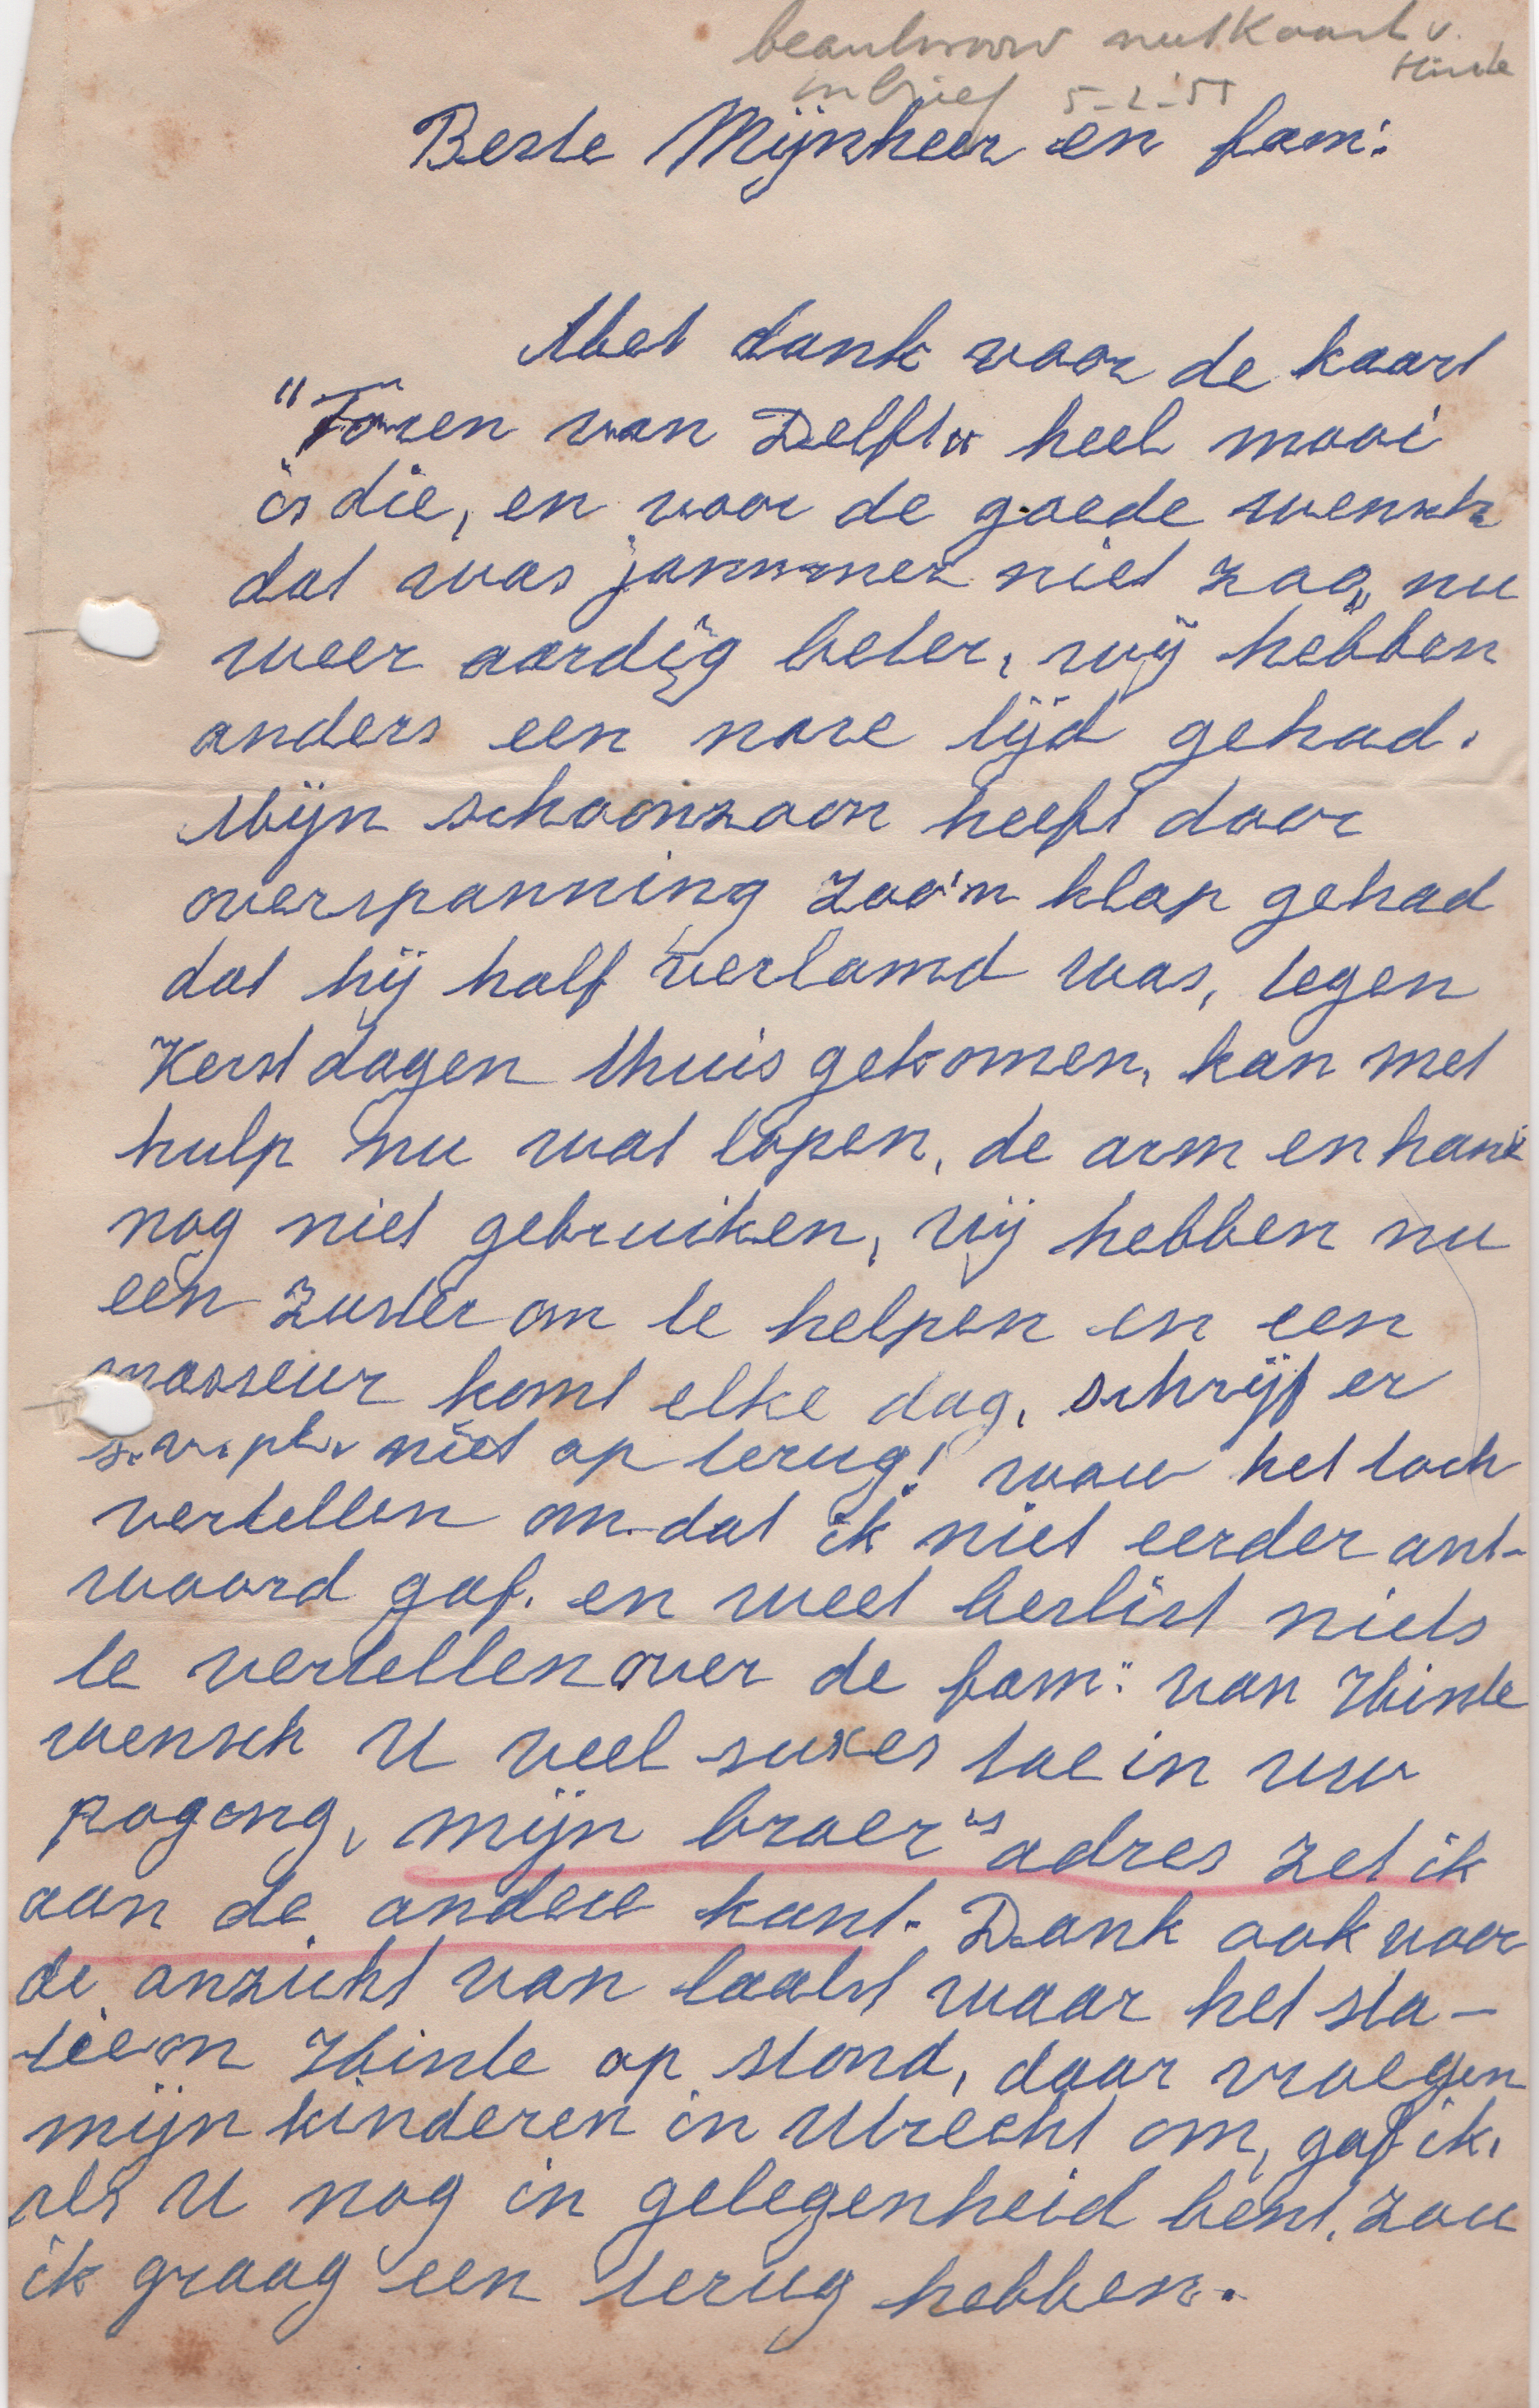 beantwoord met kaart v.
in brief 5-2-'51 Hinde
Beste Mijnheer en fam:
Met dank voor de kaart
"Toren van Delft" heel mooi
is die, en voor de goede wensch
dat was jammmer niet zoo, nu
weer aardig beter, wij hebben
anders een nare tijd gehad.
Mijn schoonzoon heeft door
overspanning zoo'n klap gehad
dat hij half verlamd was, tegen
Kerstdagen thuis gekomen, kan met
hulp nu wat lopen, de arm en hand
nog niet gebruiken, wij hebben nu
een zuster om te helpen en een
masseur komt elke dag, schrijf er
s.v.pl. niet op terug! wou het toch
vertellen om dat ik niet eerder ant-
woord gaf. en weet beslist niets
te vertellen over de fam: van Hinde
wensch U veel sukses toe in uw
pogong, mijn broer"s adres zet ik
aan de andere kant. Dank ook voor
de anzicht van laatst waar het sta-
tie on Hinde op stond, daar vroegen
mijn kinderen in Utrecht om, gaf ik,
als U nog in gelegenheid bent, zou
ik graag een terug hebben.